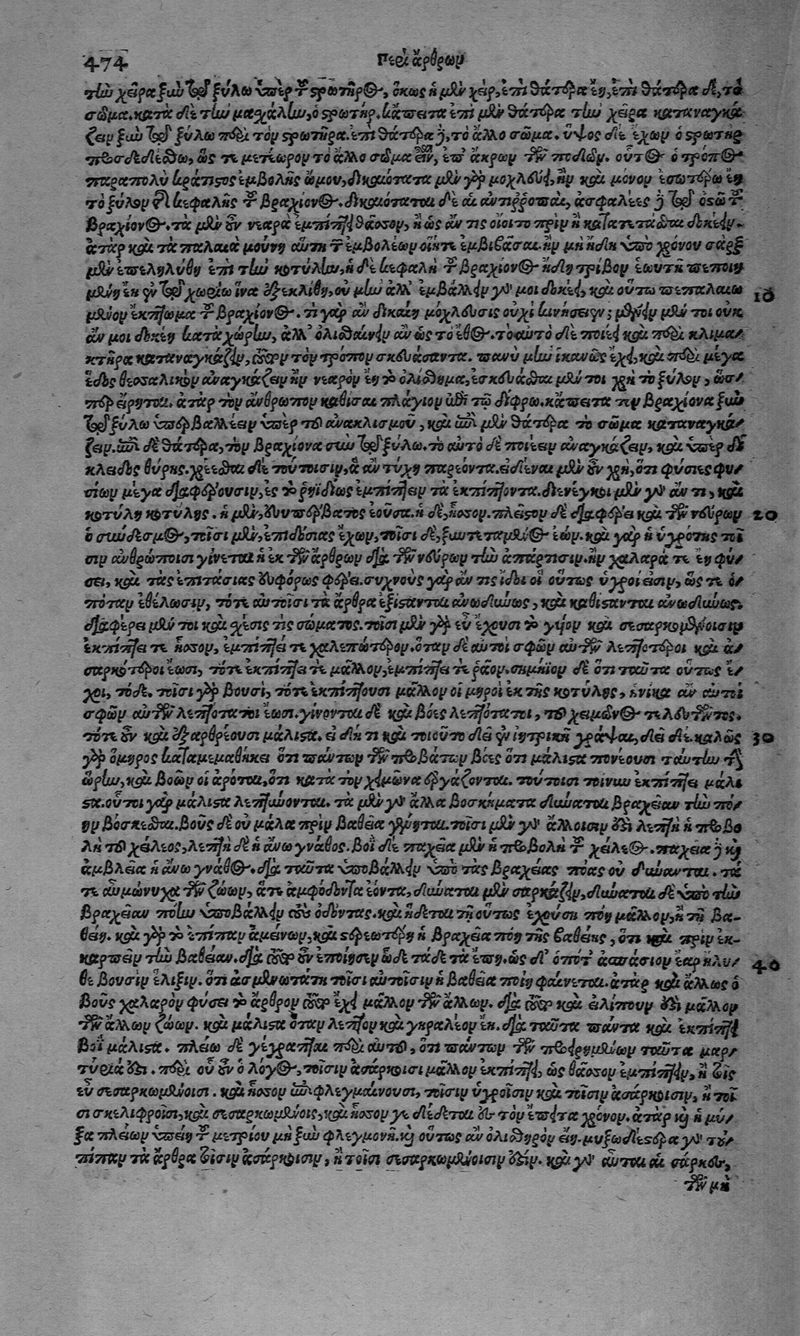 474 Περὶ ἄρθρων
τὴν χεῖρα ξὺν τῷ ξύλῳ ὑπὲρ τοῦ στρωτῆρος, ὅκως ἡ μὲν χεὶρ, ἐπὶ θάτερα ἔῃ, ἐπὶ θάτερα δὲ, τὸ
σῶμα. κατὰ δὲ τὴν μασχάλην, ὁ στρωτήρ. κἄπειτα ἐπὶ μὲν θάτερα τὴν χεῖρα καταναγκά
ζειν ξὺν τῷ ξύλῳ περὶ τὸν στρωτῆρα. ἐπὶ θάτερα δὲ, τὸ ἄλλο σῶμα. ὕψος δὲ ἔχων ὁ στρωτὴρ
προσδεδέσθω, ὥς τε μετέωρον τὸ ἄλλο σῶμα εἶναι, ἐπ' ἄκρων τῶν ποδῶν. οὗτος ὁ τρόπος
παραπολὺ κράτιστος ἐμβολῆς ὤμου, δικαιότατα μὲν γὰρ μοχλεύει, ἢν καὶ μόνον ἐσωτέρω ἔῃ
τὸ ξύλον τῆς κεφαλῆς τοῦ βραχίονος. δικαιόταται δὲ αἱ ἀντιρροπαὶ, ἀσφαλέες δὲ τῷ ὀστέῳ τοῦ
βραχίονος. τὰ μὲν οὖν νεαρὰ ἐμπίπτει θᾶσσον, ἢ ὡς ἄν τις οἴοιτο πρὶν ἢ κατατετάσθαι δοκέειν.
ἀτὰρ καὶ τὰ παλαιὰ μούνη αὕτη τῶν ἐμβολέων οἵητε ἐμβιβάσαι. ἢν μὴ ἤδη ὑπὸ χρόνου σὰρξ
μὲν ἐπεληλύθῃ ἐπὶ τὴν κοτύλην, ἡ δὲ κεφαλὴ τοῦ βραχίονος ἤδη τρίβον ἑωυτῇ πεποιη
μένη ἔῃ ἐν τῷ χωρίῳ ἵνα ἐξεκλίθη, οὐ μὴν ἀλλ' ἐμβάλλειν γὰρ μοι δοκέει, καὶ οὕτω πεπαλαιω 10
μένον ἔκπτωμα τοῦ βραχίονος. τί γὰρ ἂν δικαίη μόχλευσις οὐχὶ κινήσειεν; μένειν μέν τοι οὐκ
ἄν μοι δοκέῃ κατὰ χώρην, ἀλλ' ὀλισθαίνειν ἂν ὡς τὸ ἔθος. τὸ αὐτὸ δὲ ποιέει καὶ περὶ κλιμα-
κτῆρα καταναγκάζειν, τοῦτον τὸν τρόπον σκευάσαντα. πανὺ μὴν ἱκανῶς ἔχει, καὶ περὶ μέγα
ἕδος θεσσαλικὸν ἀναγκάζειν ἢν νεαρὸν ἔῃ τὸ ὀλίσθημα, ἐσκευάσθαι μέν τοι χρὴ τὸ ξύλον, ὥσ-
περ εἴρηται. ἀτὰρ τὸν ἄνθρωπον καθίσαι πλάγιον ἐπὶ τῷ δίφρῳ. κἄπειτα τὴν βραχίονα ξὺν
τῷ ξύλῳ ὑπερβάλλειν ὑπὲρ τοῦ ἀνακλισμοῦ, καὶ ἐπὶ μὲν θάτερα τὸ σῶμα καταναγκά-
ζειν. ἐπὶ δὲ θάτερα, τὸν βραχίονα σὺν τῷ ξύλῳ. τὸ αὐτὸ δὲ ποιέειν ἀναγκάζειν, καὶ ὑπὲρ δι
κλειδος θύρης. χρέεσθαι δὲ τούτοισιν, ἃ ἂν τύχῃ παρεόντα. εἰδέναι μὲν οὖν χρὴ, ὅτι φύσιες φυ-
σίων μέγα διαφέρουσιν, ἐς τὸ ῥηϊδίως ἐμπίπτειν τὰ ἐκπίπτοντα. διενέγκοι μὲν γὰρ ἄν τι, καὶ
κοτύλη κοτύλης. ἡ μὲν, εὐυπέρβατος ἐοῦσα. ἡ δὲ, ἧσσον. πλεῖστον δὲ διαφέρει καὶ τῶν νεύρων 20
ὁ σύνδεσμος, τοῖσι μὲν, ἐπιδόσιας ἔχων, τοῖσι δὲ, ξυντεταμένος ἐών. καὶ γὰρ ἡ ὑγρότης τοῖ
σιν ἀνθρώποισι γίνεται ἡ ἐκ τῶν ἄρθρων διὰ τῶν νεύρων τὴν ἀπάρτισιν. ἢν χαλαρά τε ἔῃ φύ-
σει, καὶ τὰς ἐπιτάσιας εὐφόρως φέρει. συχνοὺς γὰρ ἄν τις ἴδοι οἳ οὕτως ὑγροί εἰσιν, ὥς τε ὁ-
πόταν ἐθέλωσιν, τότε αὐτοῖσι τὰ ἄρθρα ἐξίστανται ἀνωδύνως, καὶ καθίστανται ἀνωδύνως.
διαφέρει μέν τοι καὶ σχέσις τῆς σώματος. τοῖσι μὲν γὰρ εὖ ἔχουσι τὸ γυῖον καὶ σεσαρκωμένοισιν
ἐκπίπτει τε ἧσσον, ἐμπίπτει τε χαλεπώτερον. ὅταν δὲ αὐτοὶ σφῶν αὐτῶν λεπτότεροι καὶ ἀ-
σαρκότεροι ἔωσι, τότε ἐκπίπτει τε μᾶλλον, ἐμπίπτει τε ῥᾷον. σημήϊον δὲ ὅτι ταῦτα οὕτως ἔ-
χει, τόδε. τοῖσι γὰρ βουσὶ, τότε ἐκπίπτουσι μᾶλλον οἱ μηροὶ ἐκ τῆς κοτύλης, ἡνίκα ἂν αὐτοὶ
σφῶν αὐτῶν λεπτότατοι ἔωσι. γίνονται δὲ καὶ βόες λεπτότατοι, τοῦ χειμῶνος τελευτῶντος.
τότε οὖν καὶ ἐξαρθρέουσι μάλιστα. εἰ δή τι καὶ τοιοῦτο δεῖ ἐν ἰητρικῇ γράψαι, δεῖ δέ. καλῶς 30
γὰρ ὅμηρος καταμεμαθήκει ὅτι πάντων τῶν προβάτων βόες ὅτι μάλιστα πονέουσι ταύτην τὴν
ὥρην, καὶ βοῶν οἱ ἀρόται, ὅτι κατὰ τὸν χειμῶνα ἐργάζονται. τούτοισι τοίνυν ἐκπίπτει μάλι
στα. οὗτοι γὰρ μάλιστα λεπτύνονται. τὰ μὲν γὰρ ἄλλα βοσκήματα δύναται βραχεῖαν τὴν πό-
ην βόσκεσθαι. βοῦς δὲ οὐ μάλα πρὶν βαθεῖα γένηται. τοῖσι μὲν γὰρ ἄλλοισιν ἐστὶ λεπτὴ ἡ προβο
λὴ τοῦ χείλεος, λεπτὴ δὲ ἡ ἄνω γνάθος. βοῒ δὲ παχεῖα μὲν ἡ προβολὴ τοῦ χείλεος. παχεῖα δὲ καὶ
ἀμβλεῖα ἡ ἄνω γνάθος. διὰ ταῦτα ὑποβάλλειν ὑπὸ τὰς βραχείας πόας οὐ δύνανται. τά
τε αὖ μώνυχα τῶν ζώων, ἅτε ἀμφόδοντα ἐόντα, δύναται μὲν σαρκάζειν, δύναται δὲ ὑπὸ τὴν
βραχεῖαν ποίην ὑποβάλλειν τοὺς ὀδόντας. καὶ ἥδεται τῇ οὕτως ἐχούσῃ πόῃ μᾶλλον, ἢ τῇ βα-
θείῃ. καὶ γὰρ τὸ ἐπίπαν ἀμείνων, καὶ στερεωτέρη ἡ βραχεῖα πόη τῆς βαθείης, ὅτι καὶ πρὶν ἐκ-
καρπεῖν τὴν βαθεῖαν. διὰ τοῦτο οὖν ἐποίησεν ὧδε τάδε τὰ ἔπη. ὡς δ' ὁπότ' ἀσπάσιον ἔαρ ἤλυ- 40
θε βουσὶν ἕλιξιν. ὅτι ἀσμενωτάτη τοῖσι αὐτοῖσιν ἡ βαθεῖα ποίη φαίνεται. ἀτὰρ καὶ ἄλλως ὁ
βοῦς χαλαρὸν φύσει τὸ ἄρθρον τοῦτο ἔχει μᾶλλον τῶν ἄλλων. διὰ τοῦτο καὶ εἰλίπουν ἐστὶ μᾶλλον
τῶν ἄλλων ζώων. καὶ μάλιστα ὅταν λεπτὸν καὶ γηραλέον ἔῃ. διὰ ταῦτα πάντα καὶ ἐκπίπτει
βοῒ μάλιστα. πλείω δὲ γέγραπται περὶ αὐτοῦ, ὅτι πάντων τῶν προειρημένων ταῦτα μαρ-
τύριά ἐστι. περὶ οὗ οὖν ὁ λόγος, τοῖσιν ἀσάρκοισι μᾶλλον ἐκπίπτει, ὡς θᾶσσον ἐμπίπτειν, ἢ τοῖς
εὖ σεσαρκωμένοισι. καὶ ἧσσον ἐπιφλεγμαίνουσι, τοῖσιν ὑγροῖσιν καὶ τοῖσιν ἀσάρκοισιν, ἢ τοῖ
σι σκελιφροῖσι, καὶ σεσαρκωμένοις, καὶ ἧσσον γε δέδεται ἐς τὸν ἔπειτα χρόνον. ἀτὰρ καὶ ἡ μύ-
ξα πλείων ὑπείη τοῦ μετρίου μὴ ξὺν φλεγμονῇ. καὶ οὕτως ἂν ὀλισθηρὸν εἴη. μυξωδέστερα γὰρ τοὐ-
πίπαν τὰ ἄρθρα τοῖσιν ἀσάρκοισιν, ἢ τοῖσι σεσαρκωμένοισιν ἐστίν. καὶ γὰρ αὗται αἱ σάρκες,
τῶν μὴ